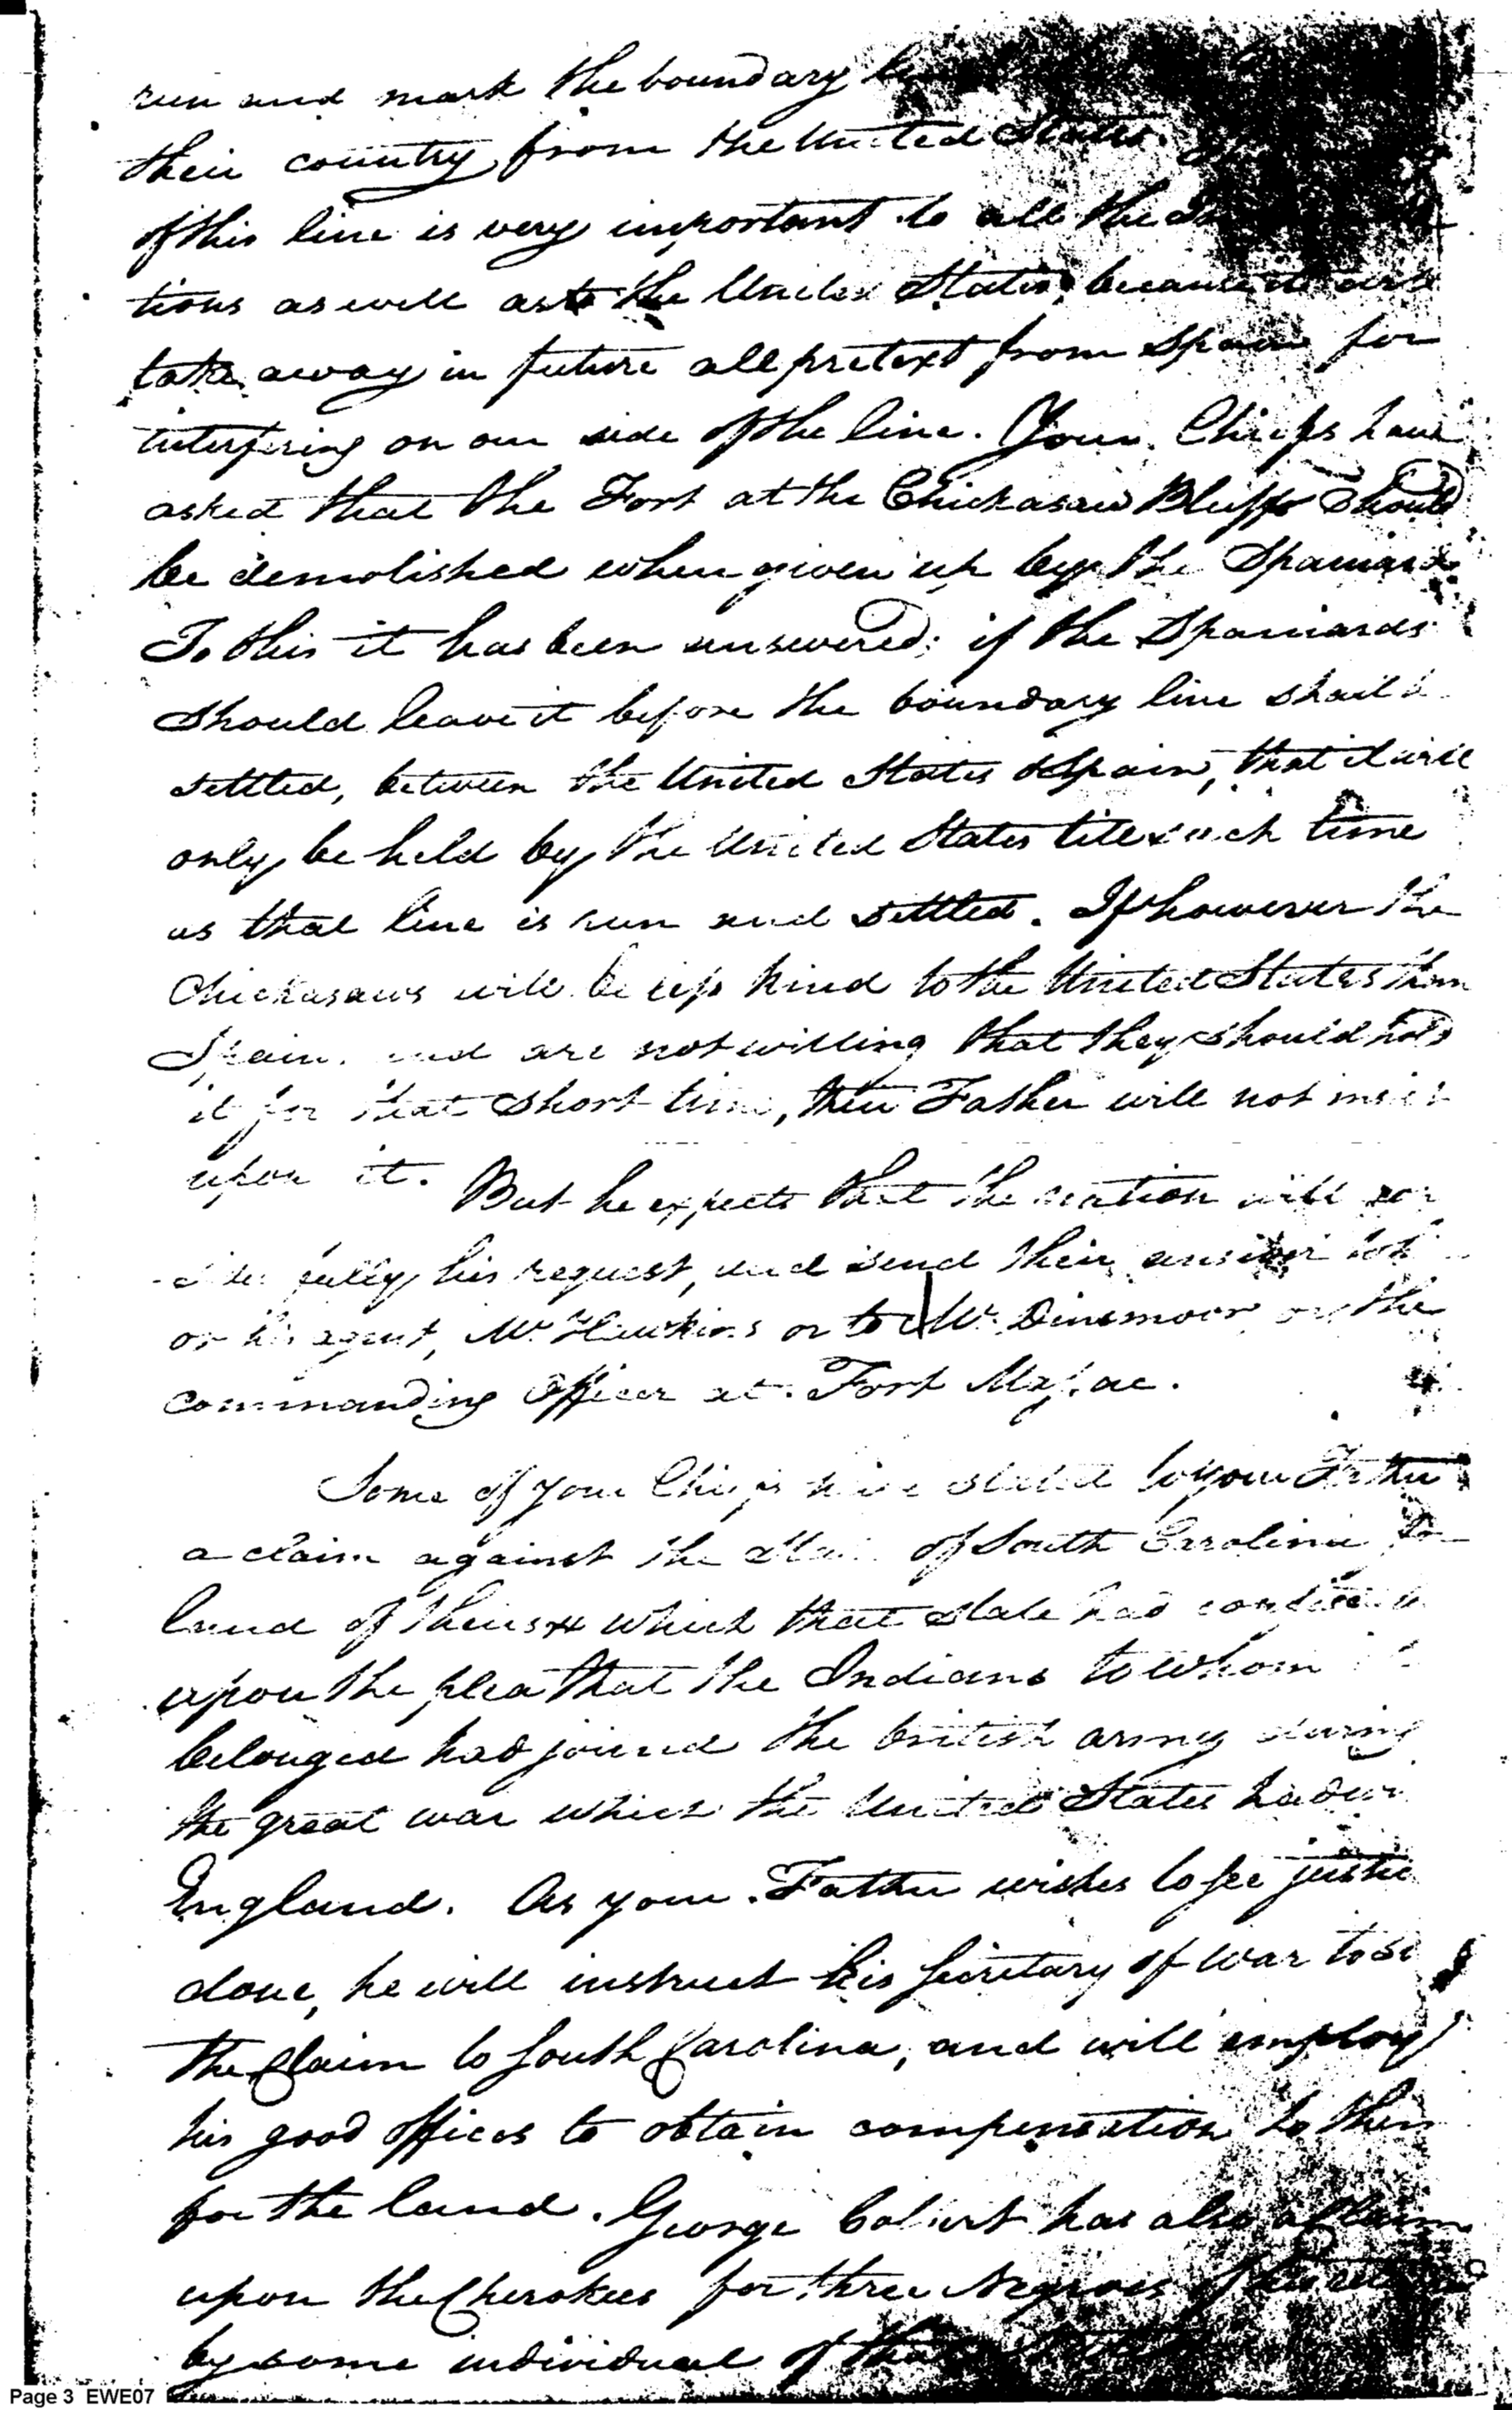 run and mark the boundary
their country from the United States.
of this line is very important to all the
tions as well as to the United States, because it
take away in future all pretext from Spain for
interfering on our side of the line. Your Chiefs have
asked that the Fort at the Chickasaw Bluffs should
be demolished when given up by the Spaniards
To this it has been answered; if the Spaniards
should leave it before the boundary line shall
settled, between the United States & Spain, that it will
only be held by the United States till such time
as that line is run and settled. If however the
Chickasaws will be less kind to the United States than
Spain, and are not willing that they should hold
it for that short time, their Father will not insist
upon it. But he expects that the nation will con
sider fully his request, and send their answer
or his agent, Mr. Hawkins or to Mr. Dinsmoor or the
commanding Officer at Fort Massac.
Some of your Chiefs have stated to your Father
a claim against the State of South Carolina for
land of theirs which that state had
upon the plea that the Indians to whom
belonged had joined the british army during
the great war which the United States had
England. As your Father wishes to see justice
done, he will instruct his Secretary of War to
the Claim to South Carolina, and will employ
his good offices to obtain compensation to them
for the land. George Colbert has also a claim
upon the Cherokees for three Negroes of
by some individual of that
Page 3 EWE07